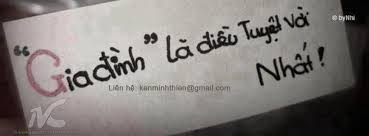 © byNhi
"Gia đình" là điều Tuyệt Vời
Nhất!
Liên hệ: kenminhthien@gmail.com